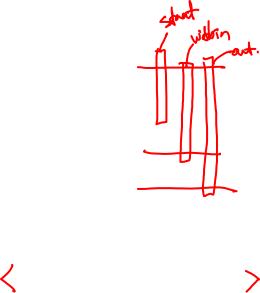 start
within
out.